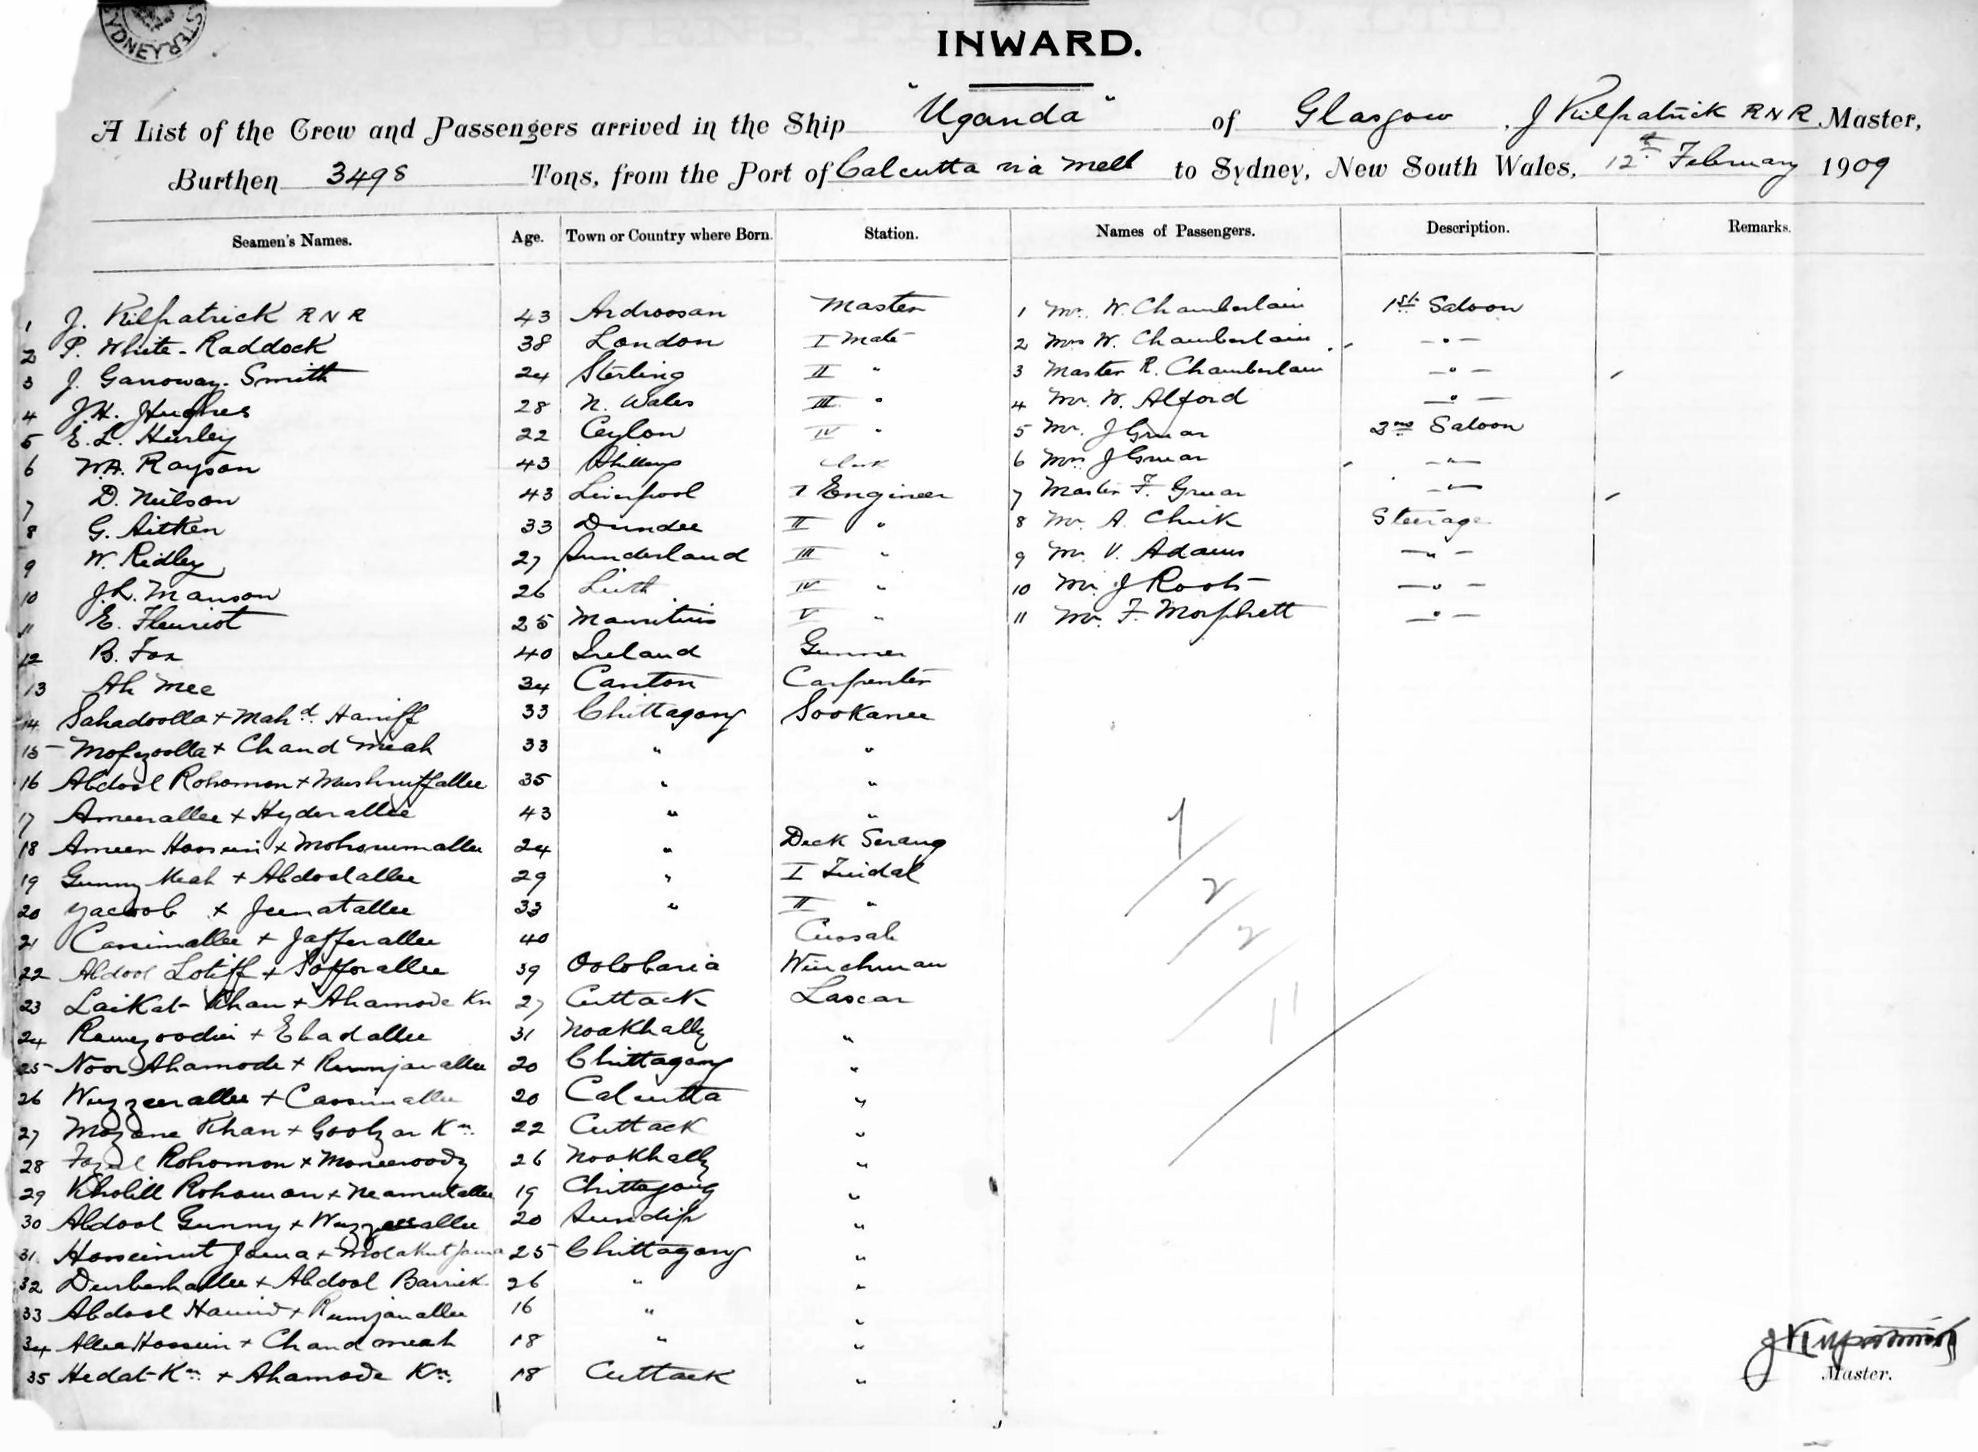 SYDNEY
INWARD.
A List of the Crew and Passengers arrived in the Ship "Uganda" of Glasgow, J Kilpatrick RNR Master,
Burthen 3498 Tons, from the Port of Calcutta via Melb to Sydney, New South Wales, 12th February 1909
Seamen's Names. Age. Town or Country where Born. Station. Names of Passengers. Description. Remarks.
1 J. Kilpatrick RNR 43 Ardrossan Master 1 Mr. W. Chamberlain 1st Saloon
2 P. White-Raddock 38 London I Mate 2 Mrs W. Chamberlain —"—
3 J. Garroway-Smith 24 Sterling II " 3 Master R. Chamberlain —"—
4 J.H. Hughes 28 N. Wales III " 4 Mr. W. Alford —"—
5 E.L. Hurley 22 Ceylon IV " 5 Mr. J Gruar 2nd Saloon
6 W.A. Rayson 43 Clerk 6 Mrs J Gruar —"—
7 D. Neilson 43 Liverpool I Engineer 7 Master F. Gruar —"—
8 G. Aitken 33 Dundee II " 8 Mr. A. Chick Steerage
9 W. Ridley 27 Sunderland III " 9 Mr. V. Adams —"—
10 J.L. Manson 26 Leith IV " 10 Mr. J Roots —"—
11 E. Fleuriot 25 Mauritius V " 11 Mr. F. Morphett —"—
12 B. Fox 40 Ireland Gunner
13 Ah Mee 34 Canton Carpenter
14 Sahadoolla + Mahd. Haniff 33 Chittagong Sookanee
15 Mofyoolla + Chand Meah 33 " "
16 Abdool Rohomon + Mushruffallee 35 " "
17 Ameerallee + Hyderallee 43 " "
18 Ameer Hossein + Mohorumallee 24 " Deck Serang
19 Gunny Meah + Abdoolallee 29 " I Tindal
20 Yacoob + Jeenatallee 33 " II "
21 Cassimallee + Jafferallee 40 Cussab
22 Abdool Lotiff + Safforallee 39 Oolobaria Winchman
23 Laikat Khan + Ahamode Kn 27 Cuttack Lascar
24 Ramzoodin + Ebadallee 31 Noakhally "
25 Noor Ahamode + Rumjanallee 20 Chittagong "
26 Wuzzeerallee + Cassimallee 20 Calcutta "
27 Mozane Khan + Goolzar Kn. 22 Cuttack "
28 Fozal Rohomon + Moneeroody 26 Noakhally "
29 Kholill Rohoman + Neamutallee 19 Chittagong "
30 Abdool Gunny + Wuzzeerallee 20 Sundip "
31 Hosseinut Joma + Molakut Joma 25 Chittagong "
32 Durbeshallee + Abdool Barrick 26 " "
33 Abdool Hamid + Rumjanallee 16 " "
34 Allee Hossein + Chand meah 18 " "
35 Hedat Kn. + Ahamode Kn. 18 Cuttack "
1
2
2
11
J Kilpatrick
Master.